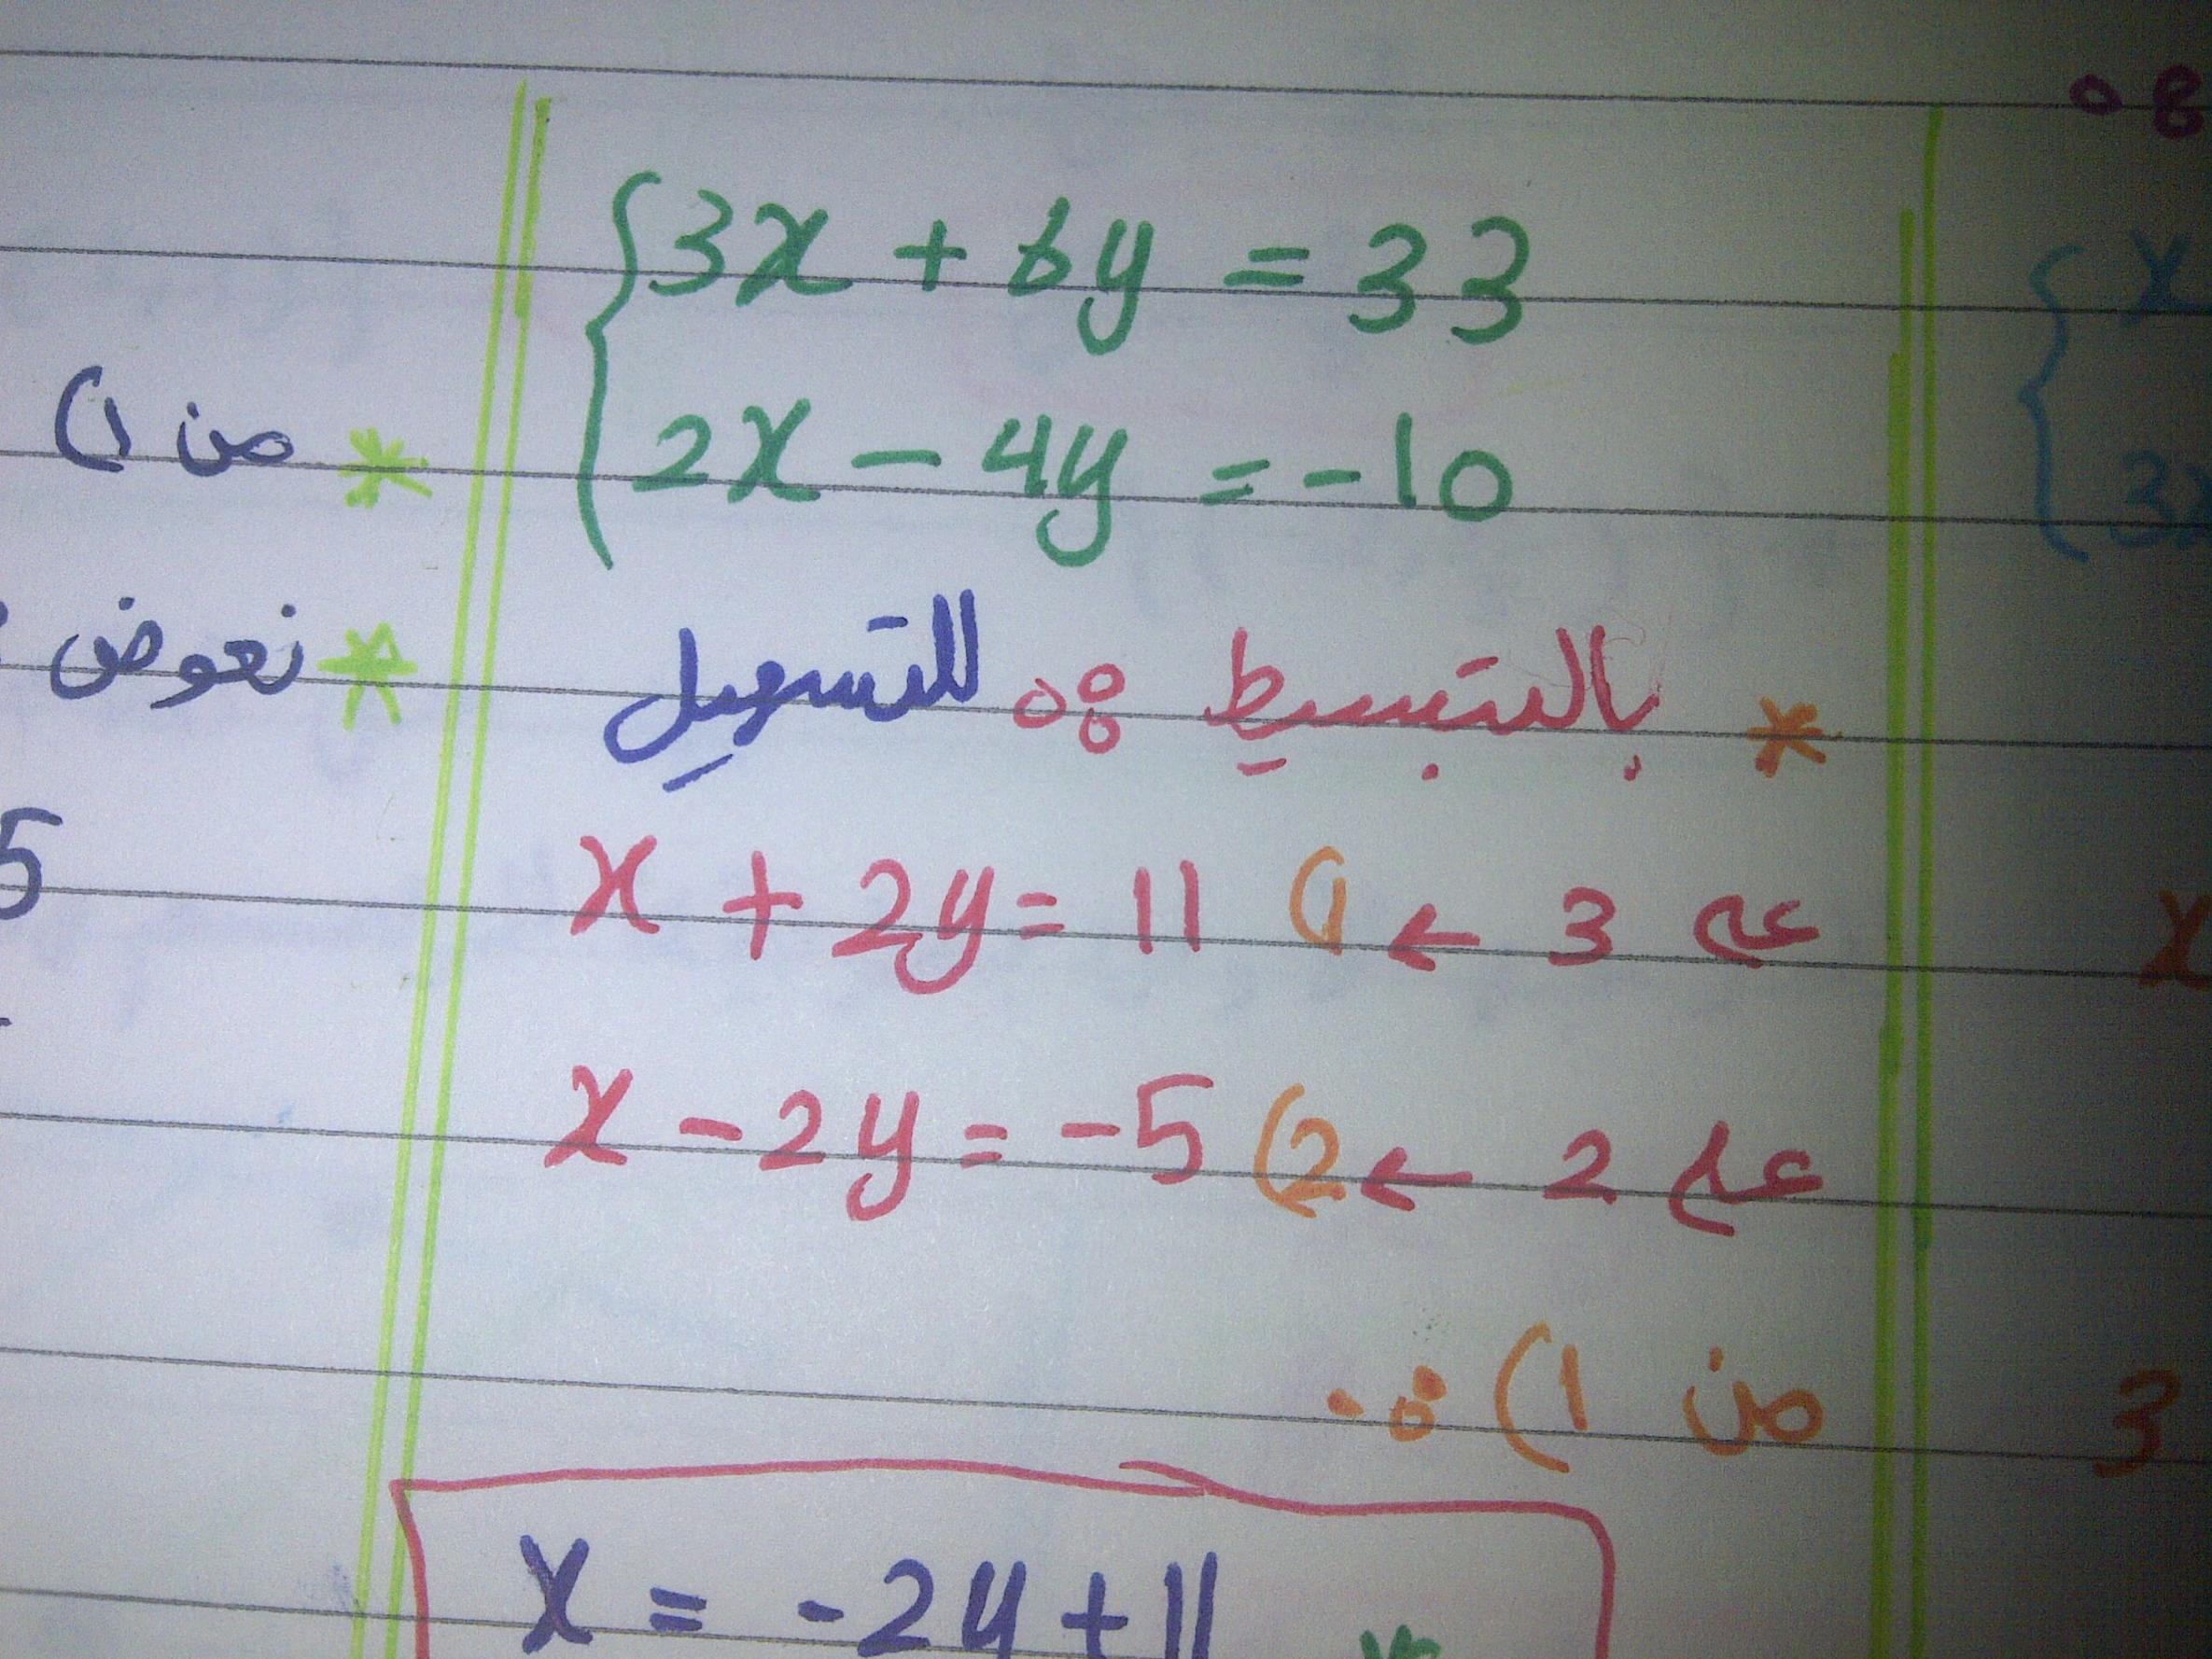 3x + 6y = 33
2x - 4y = -10
* بالتبسيط : للتسهيل
x + 2y = 11 (1 ← 3 على
x - 2y = -5 (2 ← 2 على
من 1) :
x = -2y + 11
* من 1)
* نعوض
5
x
3x
x
3